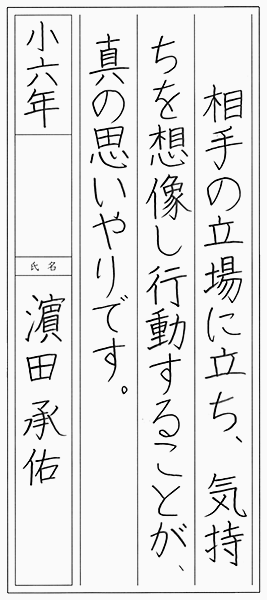 相手の立場に立ち、気持
ちを想像し行動することが、
真の思いやりです。
小六年
氏名
濵田承佑